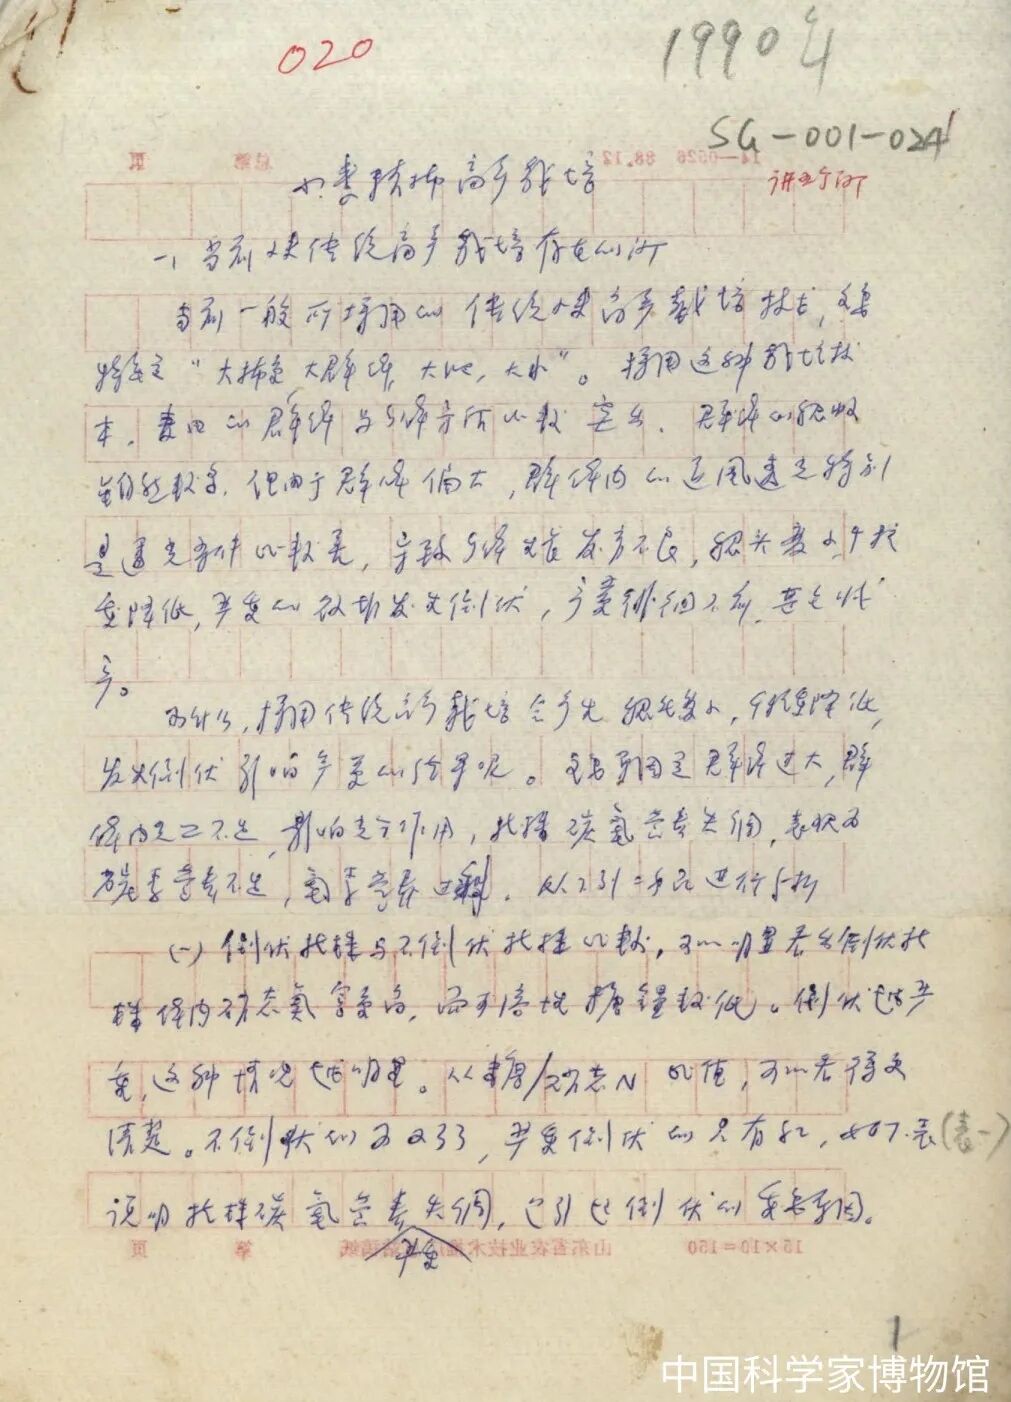 020
1990年
SG-001-024
14—0526 88.12
总第 页
小麦精播高产栽培
讲
一、当前小麦传统高产栽培存在的问
当前一般所采用的传统小麦高产栽培技术，主要
特点是“大播量，大群体，大肥，大水”。采用这种栽培技
术，麦田的群体与个体矛盾比较突出，群体的穗数
虽能较多，但由于群体偏大，群体内的通风透光特别
是透光条件比较差，导致个体生长发育不良，穗头变小，千粒
重降低，严重的后期发生倒伏，产量徘徊不前，甚至减
产。
为什么，采用传统高产栽培会产生穗头变小，千粒重降低，
发生倒伏影响产量的结果呢。主要原因是群体过大，群
体内光照不足，影响光合作用，植株碳氮营养失调，表现为
碳素营养不足，氮素营养过剩。从下列方面进行分析
(一)倒伏植株与不倒伏植株比较，可以明显看出倒伏植
株体内硝态氮含量高，而可溶性糖量较低。倒伏越严
重，这种情况越明显。从糖/硝态N比值，可以看得更
清楚。不倒伏的为 严重倒伏的只有 如下表(表一)
说明植株碳氮营养失调，是引起倒伏的重要原因。
严重
15×10=150
山东省农业技术推广 稿纸
第 页
1
中国科学家博物馆